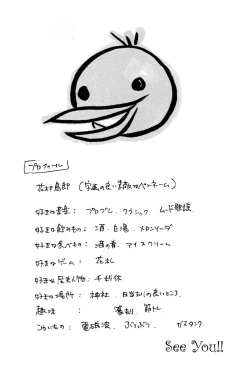 プロフィール
花村鳥郎 (字画の良い 親父のペンネーム)
好きな音楽: プログレ、クラシック ムード歌謡
好きな飲みもの: 酒、白湯、メロンソーダ
好きな食べもの: 酒の肴、アイスクリーム
好きなゲーム: 花札
好きな歴史人物: 千利休
好きな場所: 神社、日当たりの良いところ
趣味: 篆刻、筋トレ
こわいもの: 電磁波、ガスタンク
See You!!